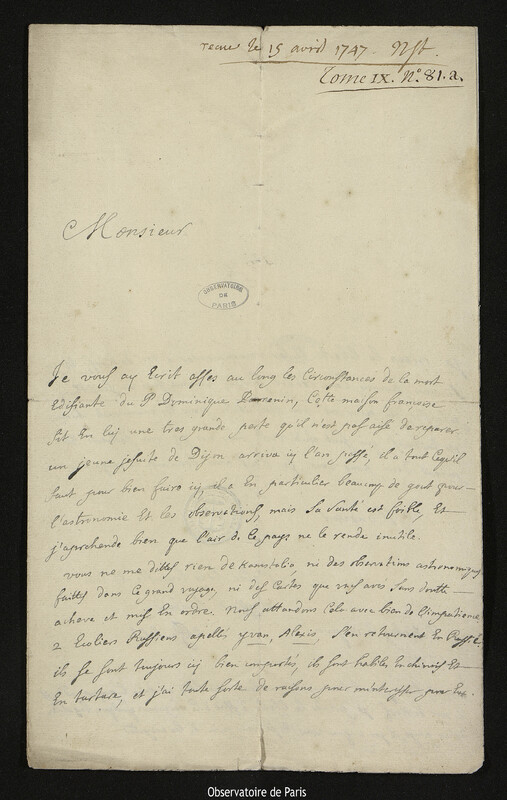 recue le 15 avril 1747.
Tome IX. N.° 81. a.
Monsieur
OBSERVATOIRE
DE
PARIS
Je vous ay Ecrit asses au long les Circonstances de la mort
Edifiante du P Dominique Parrenin, Cette maison francoise
fit En luy une tres grande perte qu'il n'est pas aise de reparer
un jeune jesuite de Dijon arriva icy l'an passé, il a tout ce qu'il
faut pour bien faire icy, il a En particulier beaucoup de gout pour
l'astronomie Et les observations, mais sa santé est foible, Et
j'aprehende bien que l'air de ce pays ne le rende inutile.
vous ne me dittes rien de Kamstatka ni des observations astronomiques
faittes dans ce grand voyage, ni des Cartes que vous aves sans doutte
acheve et mis En ordre. nous attandons Cela avec bien de l'impatience
2 Ecoliers Russiens apellés yvan, Alexis, s'en retournent En Russie.
ils se sont toujours icy bien comportés, ils sont habiles En chinois Et
En tartare, et j'ai toute sorte de raisons pour m'interesser pour Eux.
Observatoire de Paris